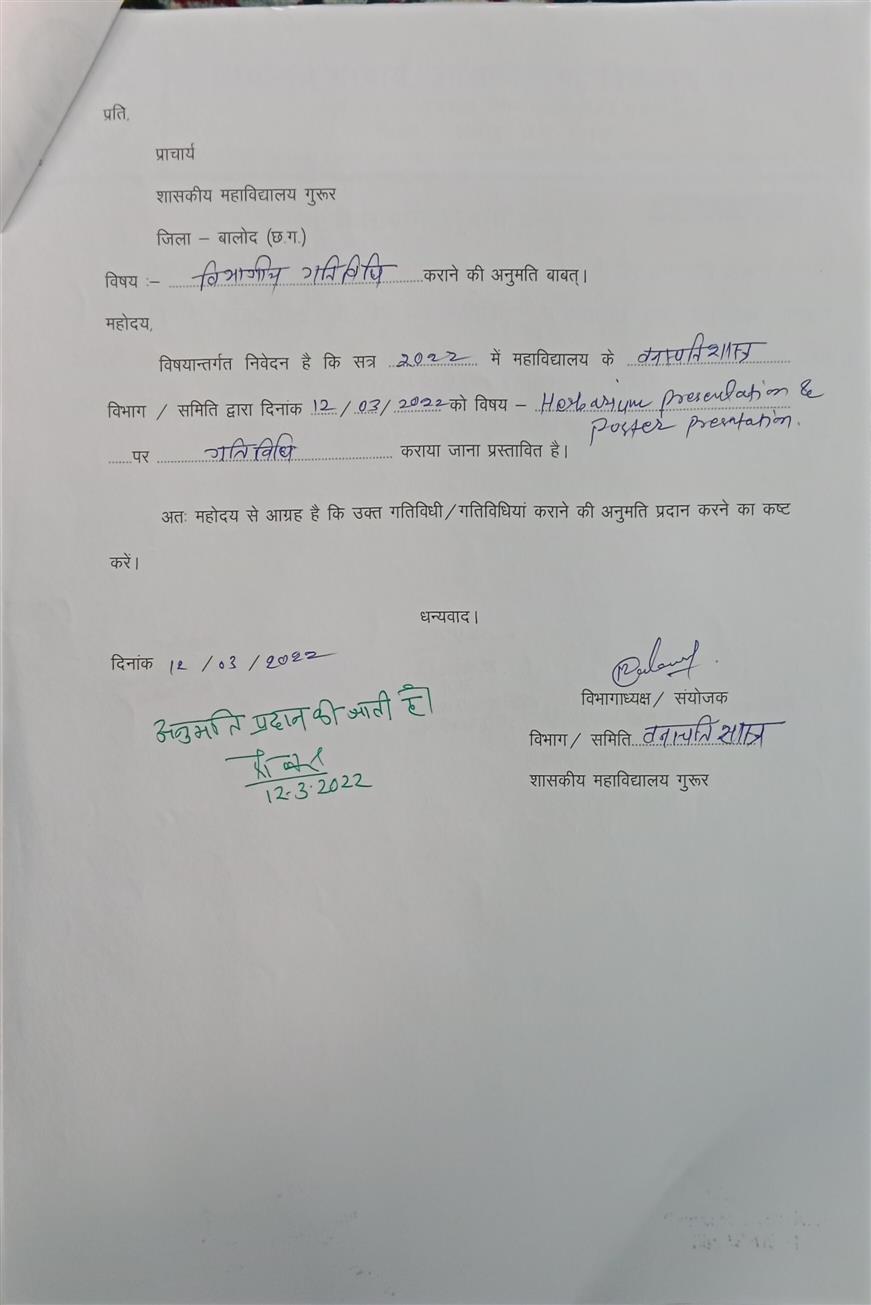 प्रति,
प्राचार्य
शासकीय महाविद्यालय गुरूर
जिला – बालोद (छ.ग.)
विषय :– विभागीय गतिविधि कराने की अनुमति बाबत्।
महोदय,
विषयान्तर्गत निवेदन है कि सत्र 2022 में महाविद्यालय के वनस्पतिशास्त्र
विभाग / समिति द्वारा दिनांक 12/03/2022 को विषय – Herbarium presentation &
Poster presntation.
पर गतिविधि कराया जाना प्रस्तावित है।
अतः महोदय से आग्रह है कि उक्त गतिविधी/गतिविधियां कराने की अनुमति प्रदान करने का कष्ट
करें।
धन्यवाद।
दिनांक 12/03/2022
विभागाध्यक्ष/ संयोजक
अनुमति प्रदान की जाती है।
विभाग/ समिति वनस्पतिशास्त्र
12.3.2022
शासकीय महाविद्यालय गुरूर